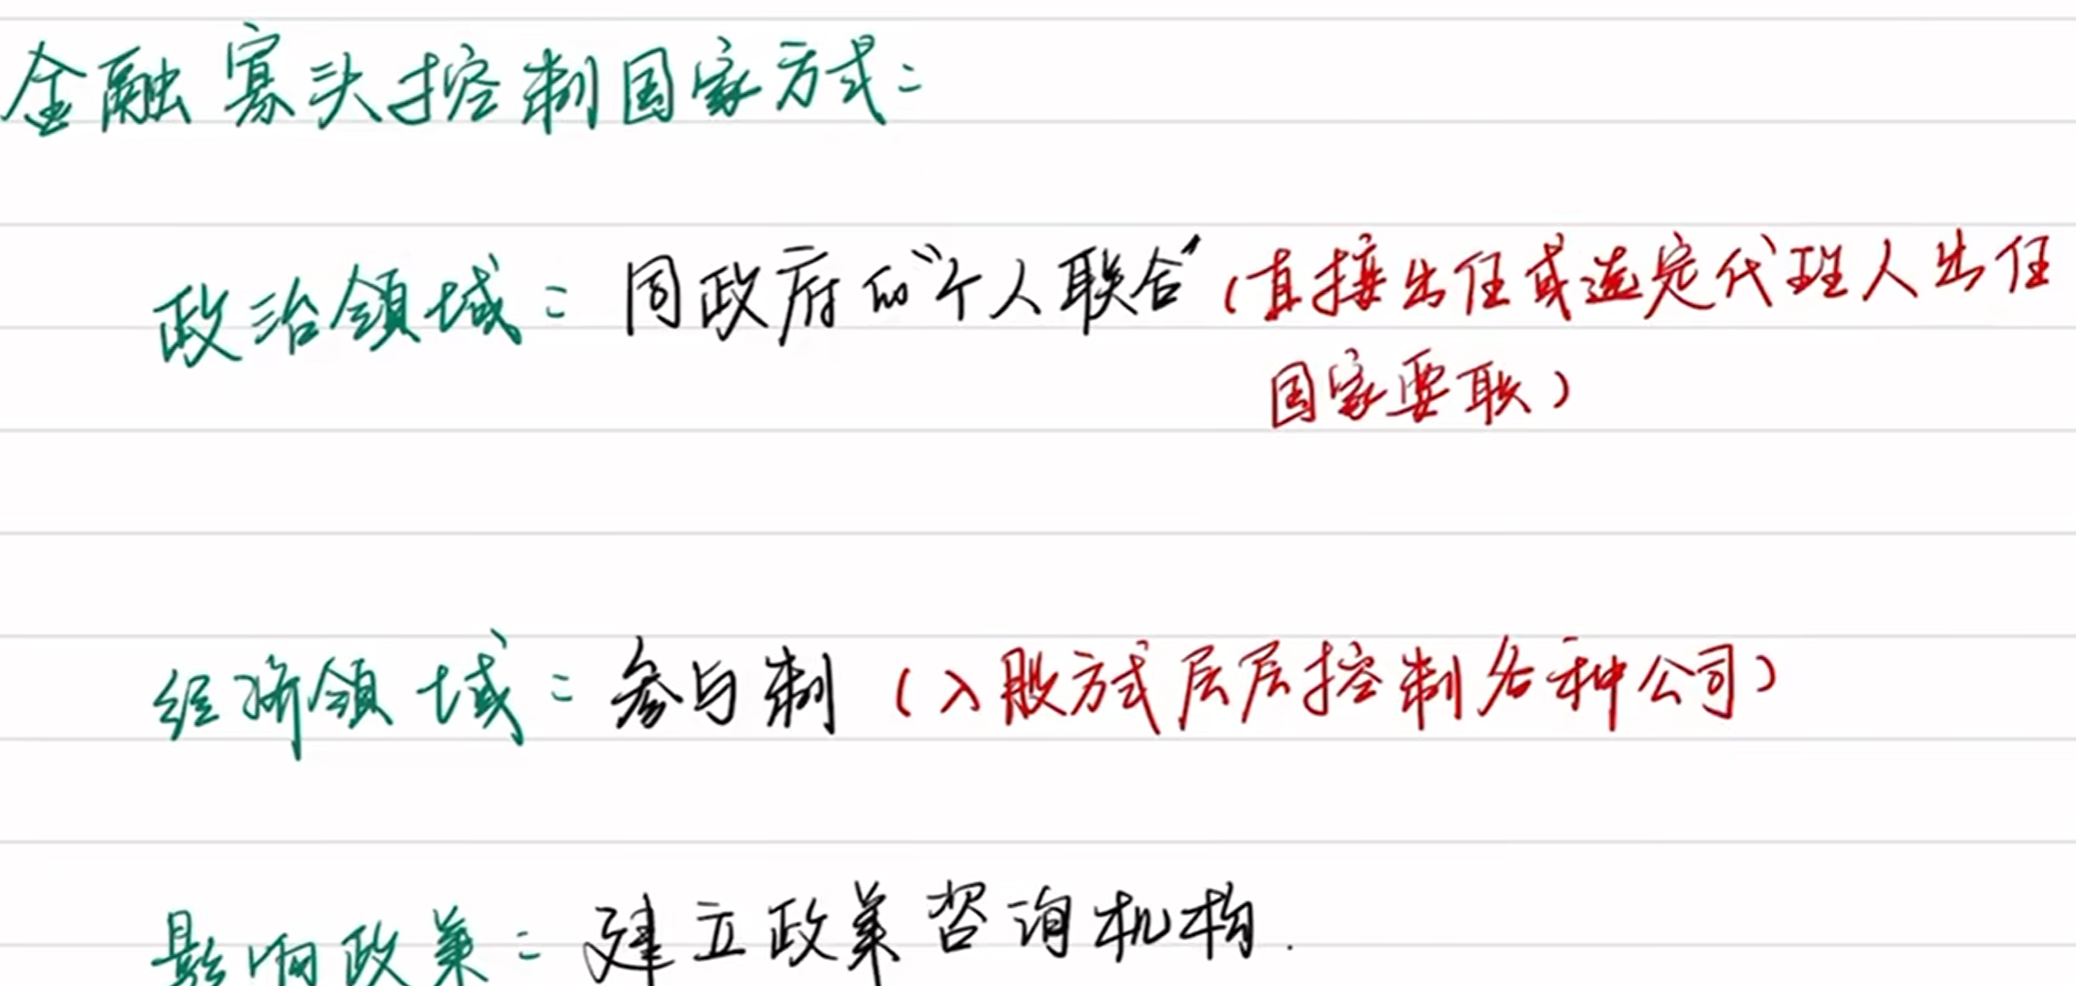 金融寡头控制国家方式:
政治领域: 同政府的“个人联合”(直接出任或选定代理人出任
国家要职)
经济领域: 参与制 (入股方式层层控制各种公司)
影响政策: 建立政策咨询机构.